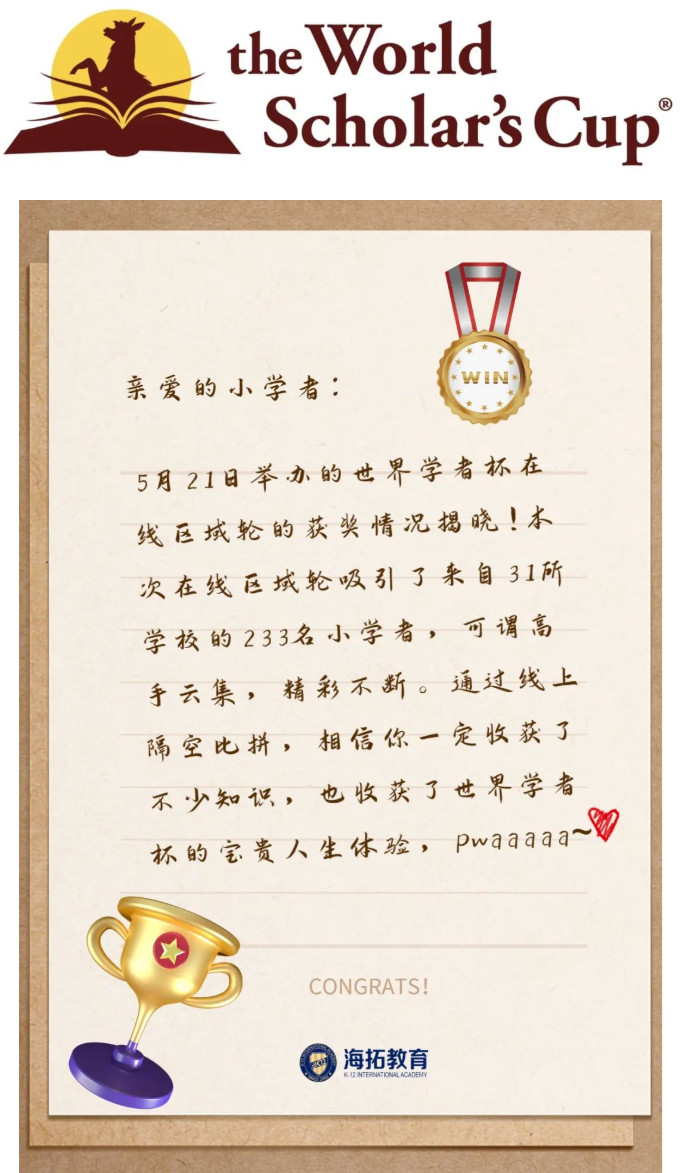 the World
Scholar's Cup®
WIN
亲爱的小学者：
5月21日举办的世界学者杯在
线区域轮的获奖情况揭晓！本
次在线区域轮吸引了来自31所
学校的233名小学者，可谓高
手云集，精彩不断。通过线上
隔空比拼，相信你一定收获了
不少知识，也收获了世界学者
杯的宝贵人生体验，pwaaaaa~
CONGRATS!
海拓教育
K-12 INTERNATIONAL ACADEMY